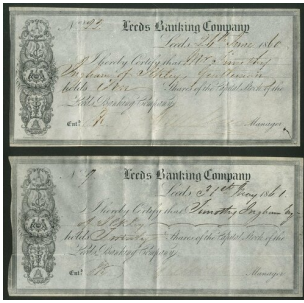 Nº 392 Leeds Banking Company
Leeds 24th June 1860
I hereby Certify that Mr Timothy
Ingham of Gentleman
holds Ten Shares of the Capital Stock of the
Leeds Banking Company
Ent.d Manager
Nº Leeds Banking Company
Leeds 31st May 1861
I hereby Certify that Timothy Ingham
holds Twenty Shares of the Capital Stock of the
Leeds Banking Company
Ent.d Manager